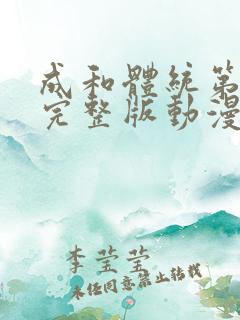 成和體統第
完整版動漫
李莹莹
未经同意禁止转载